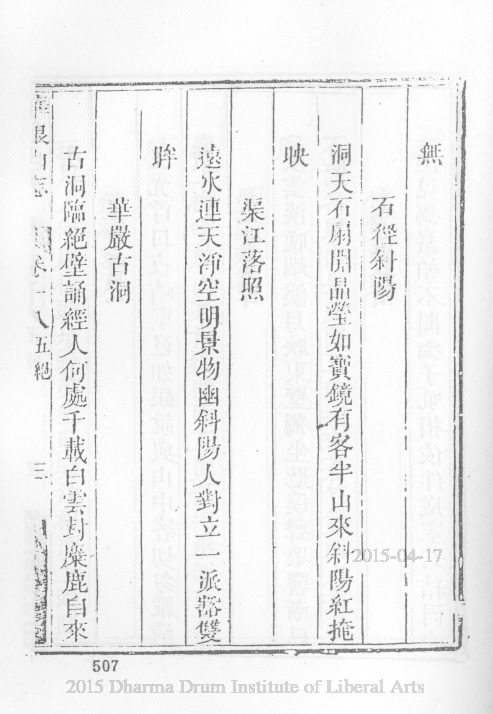 無
石徑斜陽
洞天石扇開晶瑩如寶鏡有客半山來斜陽紅掩
映
渠江落照
遠水連天淨空明景物幽斜陽人對立一派豁雙
眸
華嚴古洞
古洞臨絕壁誦經人何處千載白雲封麋鹿自來
銀山志
卷十八五絕
三
507
2015-04-17
2015 Dharma Drum Institute of Liberal Arts